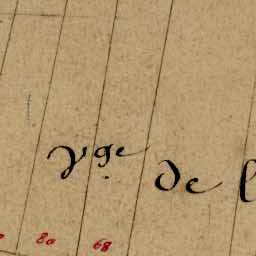 vge de
80 68